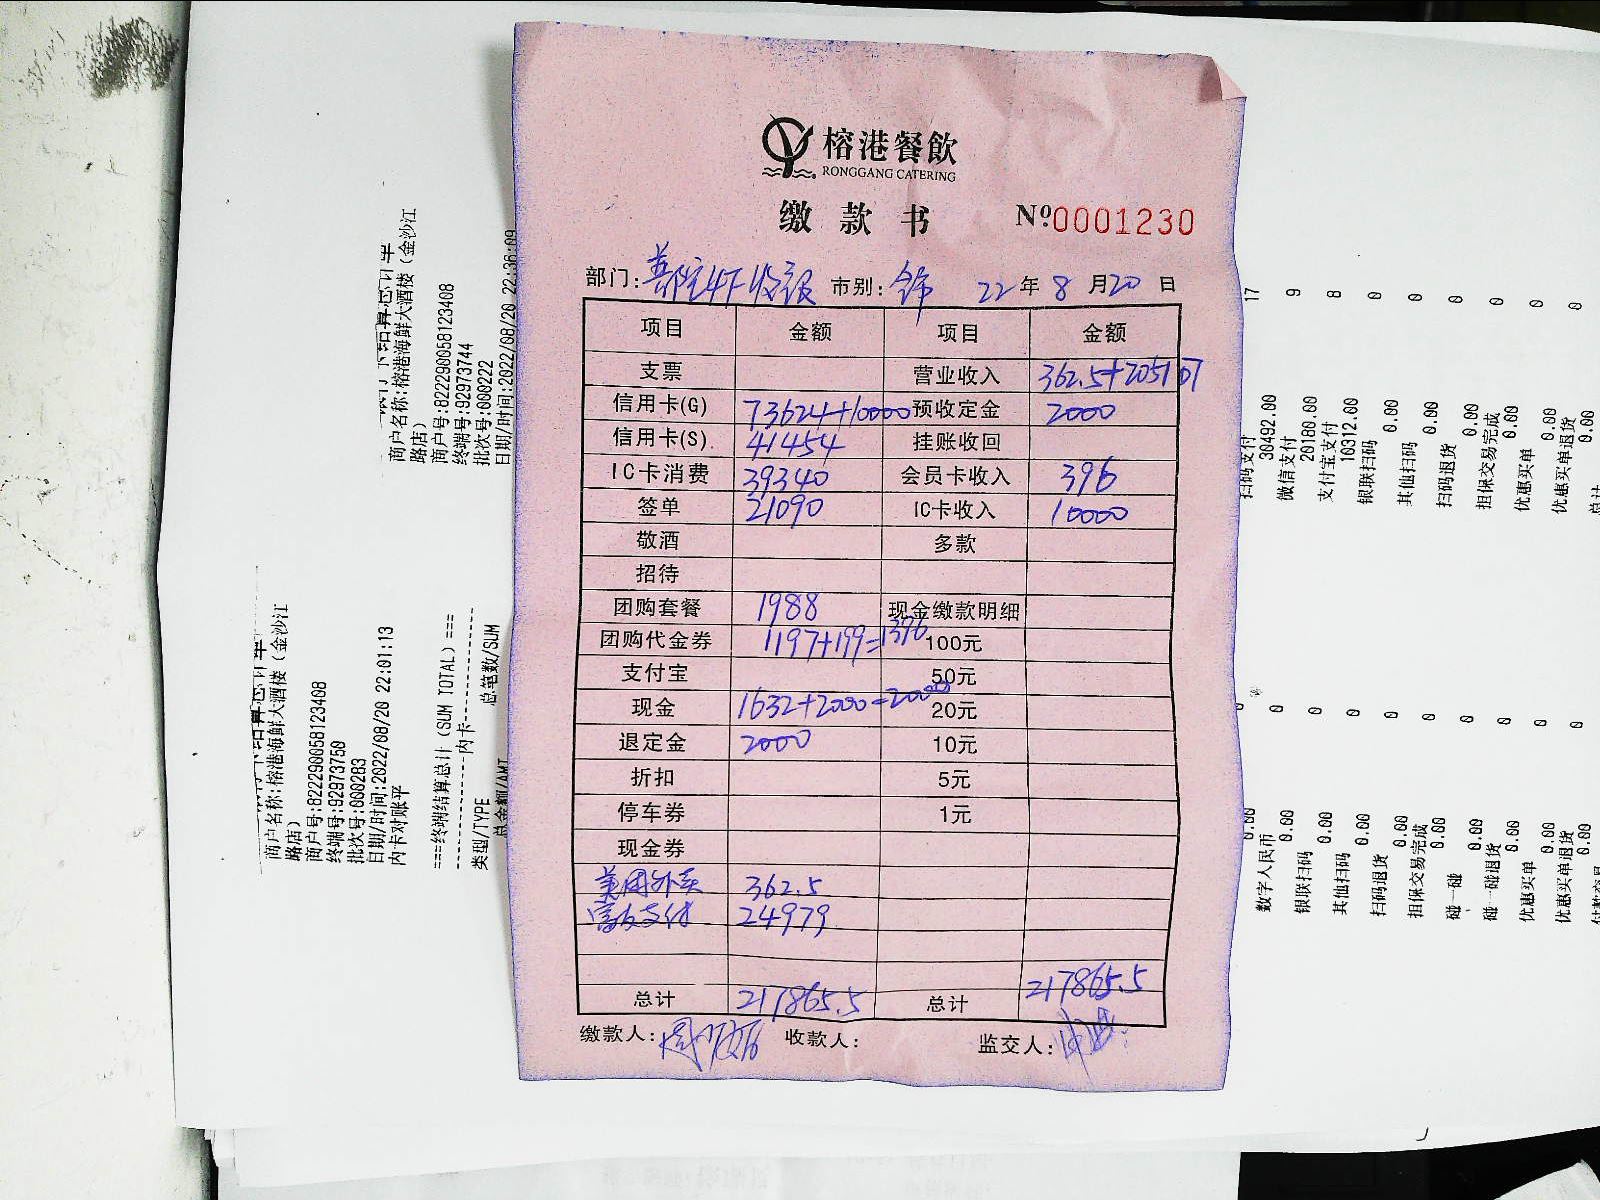 榕港餐飲
RONGGANG CATERING
缴款书
№0001230
部门: 市别: 22年8月20日
项目 金额 项目 金额
支票 营业收入 362.5+205107
信用卡(G) 73624+10000 预收定金 2000
信用卡(S) 41454 挂账收回
IC卡消费 39340 会员卡收入 396
签单 21090 IC卡收入 10000
敬酒 多款
招待
团购套餐 1988 现金缴款明细
团购代金券 1197+199=1396 100元
支付宝 50元
现金 1632+2000= 20元
退定金 2000 10元
折扣 5元
停车券 1元
现金券
美团外卖 362.5
支付 24979
总计 217865.5 总计 217865.5
缴款人: 收款人: 监交人:
商户名称:榕港海鲜大酒楼(金沙江
路店)
商户号:822290058123408
终端号:92973744
批次号:000222
日期/时间:2022/08/20 22:36:09
商户名称:榕港海鲜大酒楼(金沙江
路店)
商户号:822290058123408
终端号:92973750
批次号:000283
日期/时间:2022/08/20 22:01:13
内卡对账平
===终端结算总计(SUM TOTAL)===
内卡
类型/TYPE 总笔数/SUM
总金额/AMT
扫码支付 17
30492.00
微信支付 9
20180.00
支付宝支付 8
10312.00
银联扫码 0
0.00
其他扫码 0
0.00
扫码退货 0
0.00
担保交易完成 0
0.00
优惠买单 0
0.00
优惠买单退货 0
0.00
0.00
数字人民币 0
0.00
银联扫码 0
0.00
其他扫码 0
0.00
扫码退货 0
0.00
担保交易完成 0
0.00
碰一碰 0
0.00
碰一碰退货 0
0.00
优惠买单 0
0.00
优惠买单退货 0
0.00